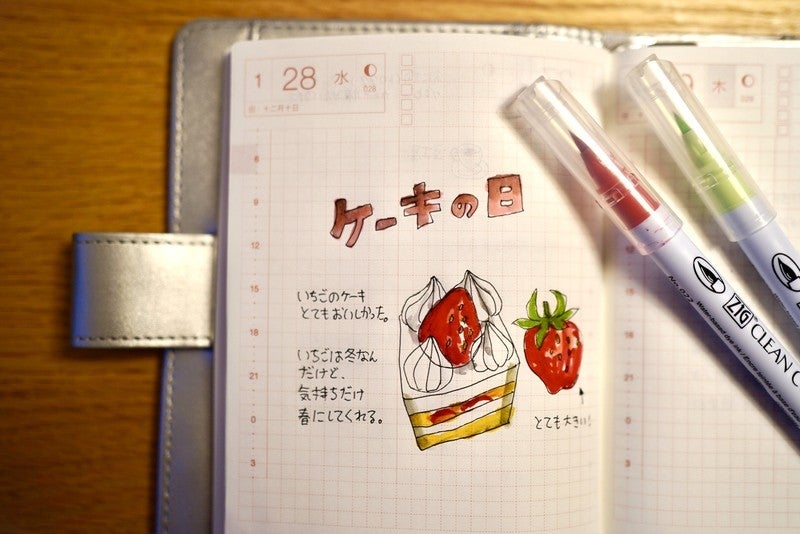 1 28 水
028
旧・十二月十日
6
9
12
15
18
21
0
3
ケーキの日
いちごのケーキ
とてもおいしかった。
いちごは冬なん
だけど、
気持ちだけ
春にしてくれる。
とても大きい!
木
029
15
18
21
0
3
No.022
ZIG CLEAN C
Water based dye ink
ZIG CLEAN